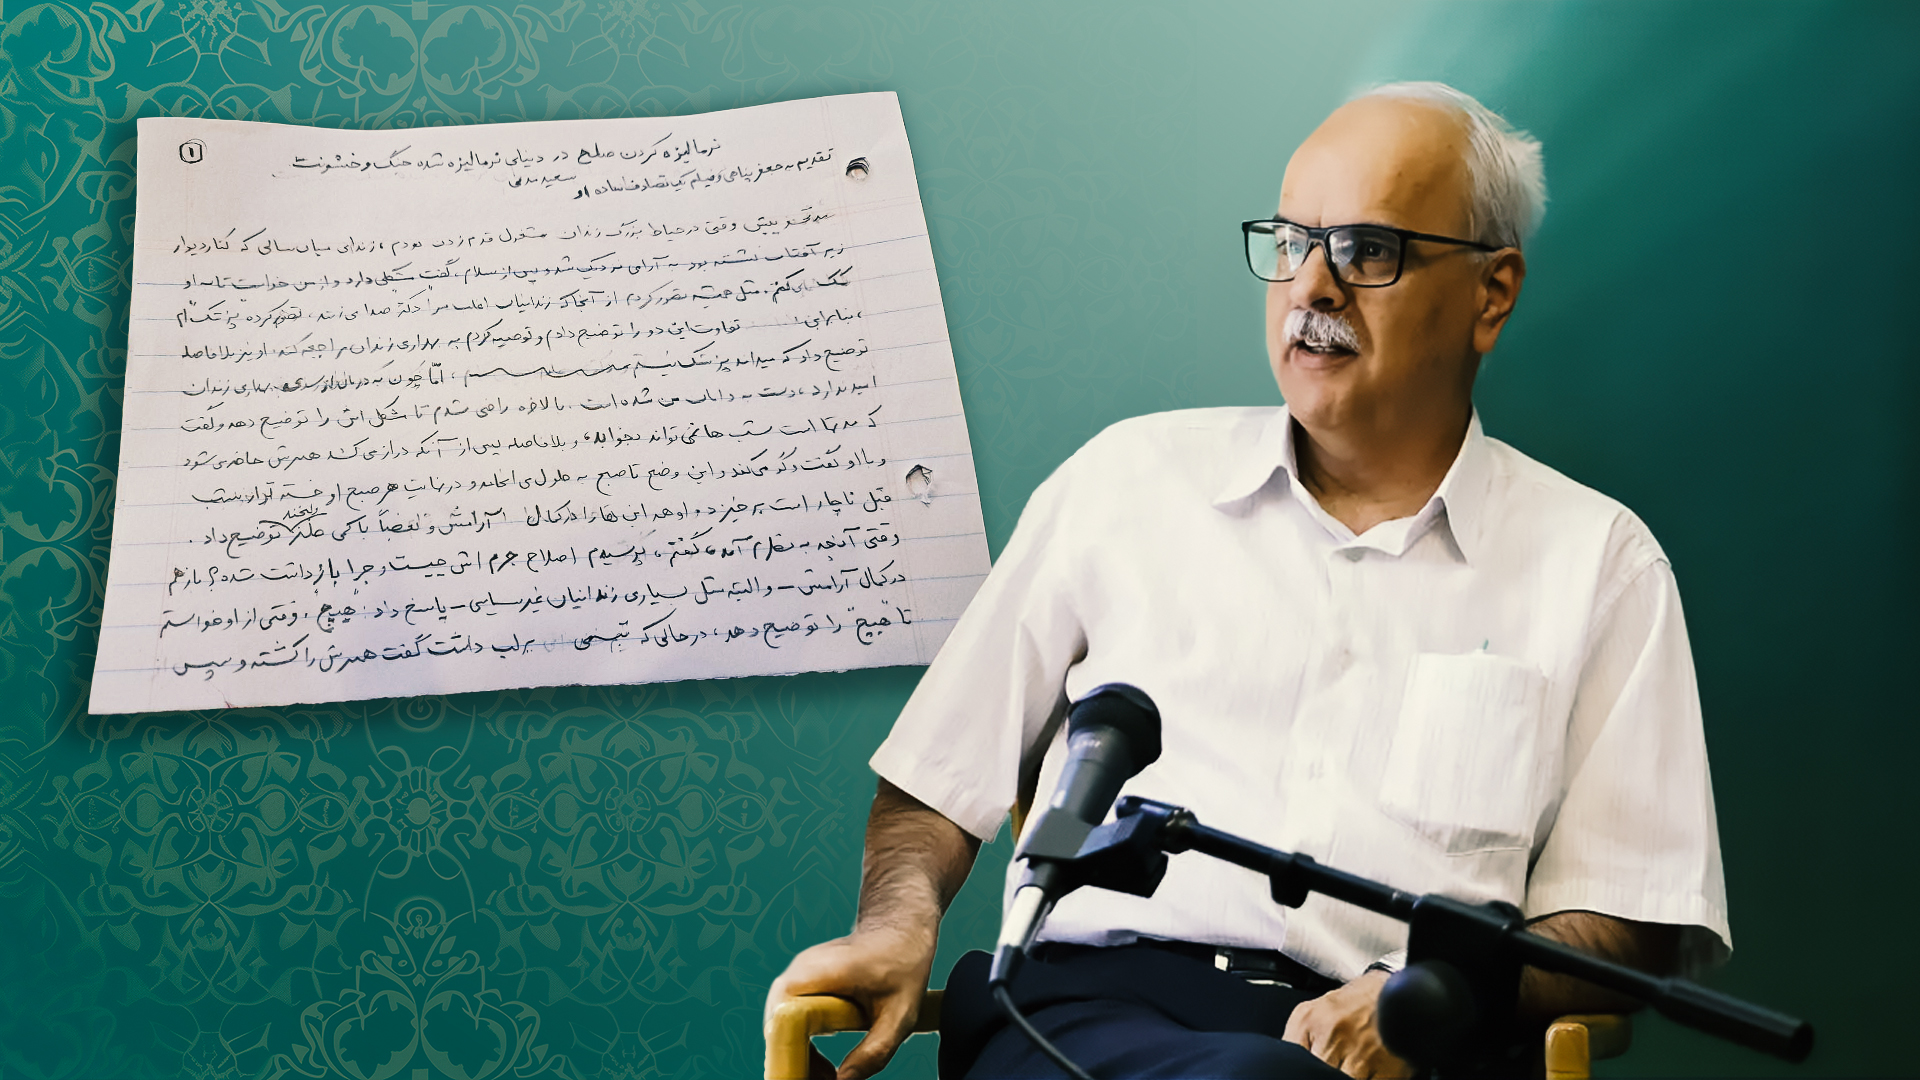 ①
نرمالیزه کردن صلح در دنیای نرمالیزه شده جنگ و خشونت
تقدیم به جعفر پناهی و فیلم یک تصادف ساده او
سعید مدنی
پیش وقتی در حیاط بزرگ زندان مشغول قدم زدن بودم، زندانی میان‌سالی که کنار دیوار
زیر آفتاب نشسته بود به آرامی نزدیک شد و پس از سلام، گفت مشکلی دارد و از من خواست تا به او
کمک کنم. مثل همیشه تصور کردم از آنجا که زندانیان اغلب مرا دکتر صدا می‌زنند، تصور کرده پزشک‌ام
، بنابراین تفاوت این دو را توضیح دادم و توصیه کردم به بهداری زندان مراجعه کند. او نیز بلافاصله
توضیح داد که میداند پزشک نیستم، امّا چون به درمان بهداری زندان
امید ندارد، دست به دامان من شده است. بالاخره راضی شدم تا مشکل اش را توضیح دهد و گفت
که مدتها است شب ها نمی تواند بخوابد، و بلافاصله پس از آنکه دراز می کشد همسرش حاضر می شود
و با او گفت و گو می‌کند و این وضع تا صبح به طول می انجامد و در نهایت هر صبع او خسته تر از شب
قبل ناچار است برخیزد و او همه این ها را در کمال آرامش و بعضاً با کمی لبخند توضیح داد.
وقتی آنچه به نظرم آمد، گفتم، پرسیدم اصلاح جرم اش چیست و چرا بازداشت شده؟ باز هم
در کمال آرامش – و البته مثل بسیاری زندانیان غیرسیاسی – پاسخ داد: "هیچ". وقتی از او خواستم
تا "هیچ" را توضیح دهد، در حالی که تبسمی بر لب داشت گفت همسرش را کشته و سپس